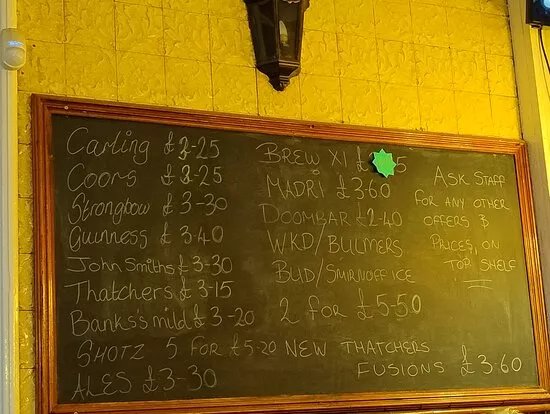 Carling £3-25
Coors £3-25
Strongbow £3-30
Guinness £3.40
John Smiths £3-30
Thatchers £3-15
Banks's mild £3-20
SHOTZ 5 FOR £5-20
ALES £3-30
BREW XI £ 5
MADRI £3.60
DOOMBAR £2-40
WKD/BULMERS
BUD/SMIRNOFF ICE
2 for £5-50
NEW THATCHERS
FUSIONS £3.60
ASK STAFF
FOR ANY OTHER
OFFERS &
PRICES, ON
TOP SHELF